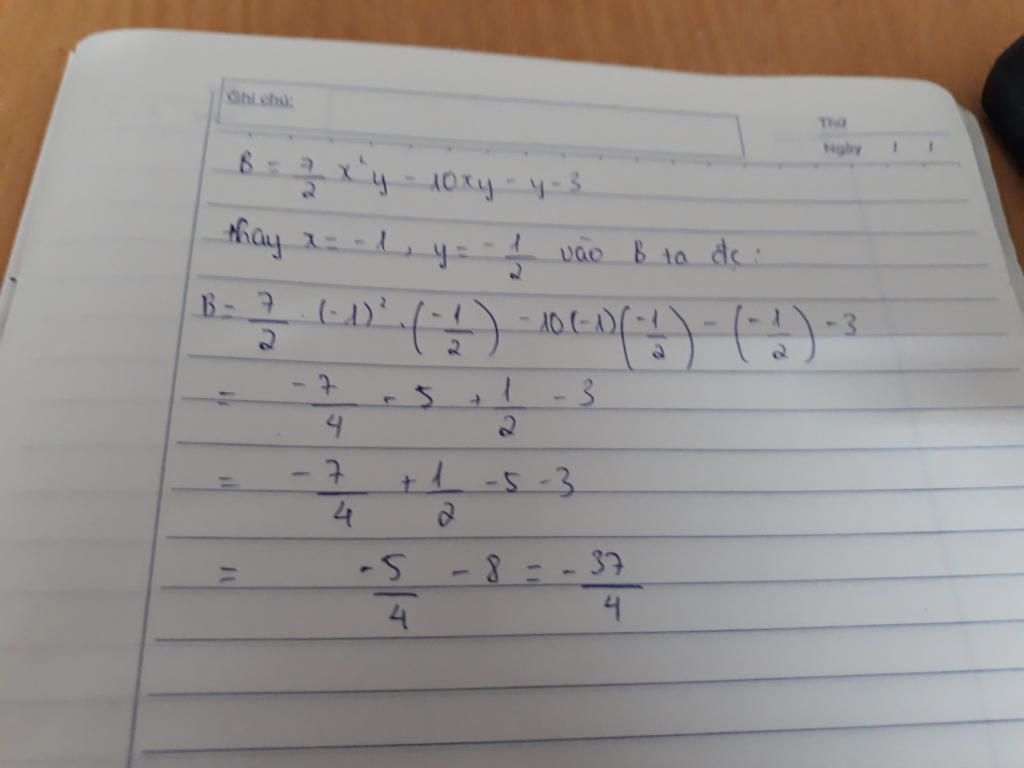 Ghi chú:
Thứ
Ngày / /
B = 7/2 x²y - 10xy - y - 3
thay x = -1, y = -1/2 vào B ta đc:
B = 7/2 . (-1)² . (-1/2) - 10(-1)(-1/2) - (-1/2) - 3
= -7/4 - 5 + 1/2 - 3
= -7/4 + 1/2 - 5 - 3
= -5/4 - 8 = -37/4